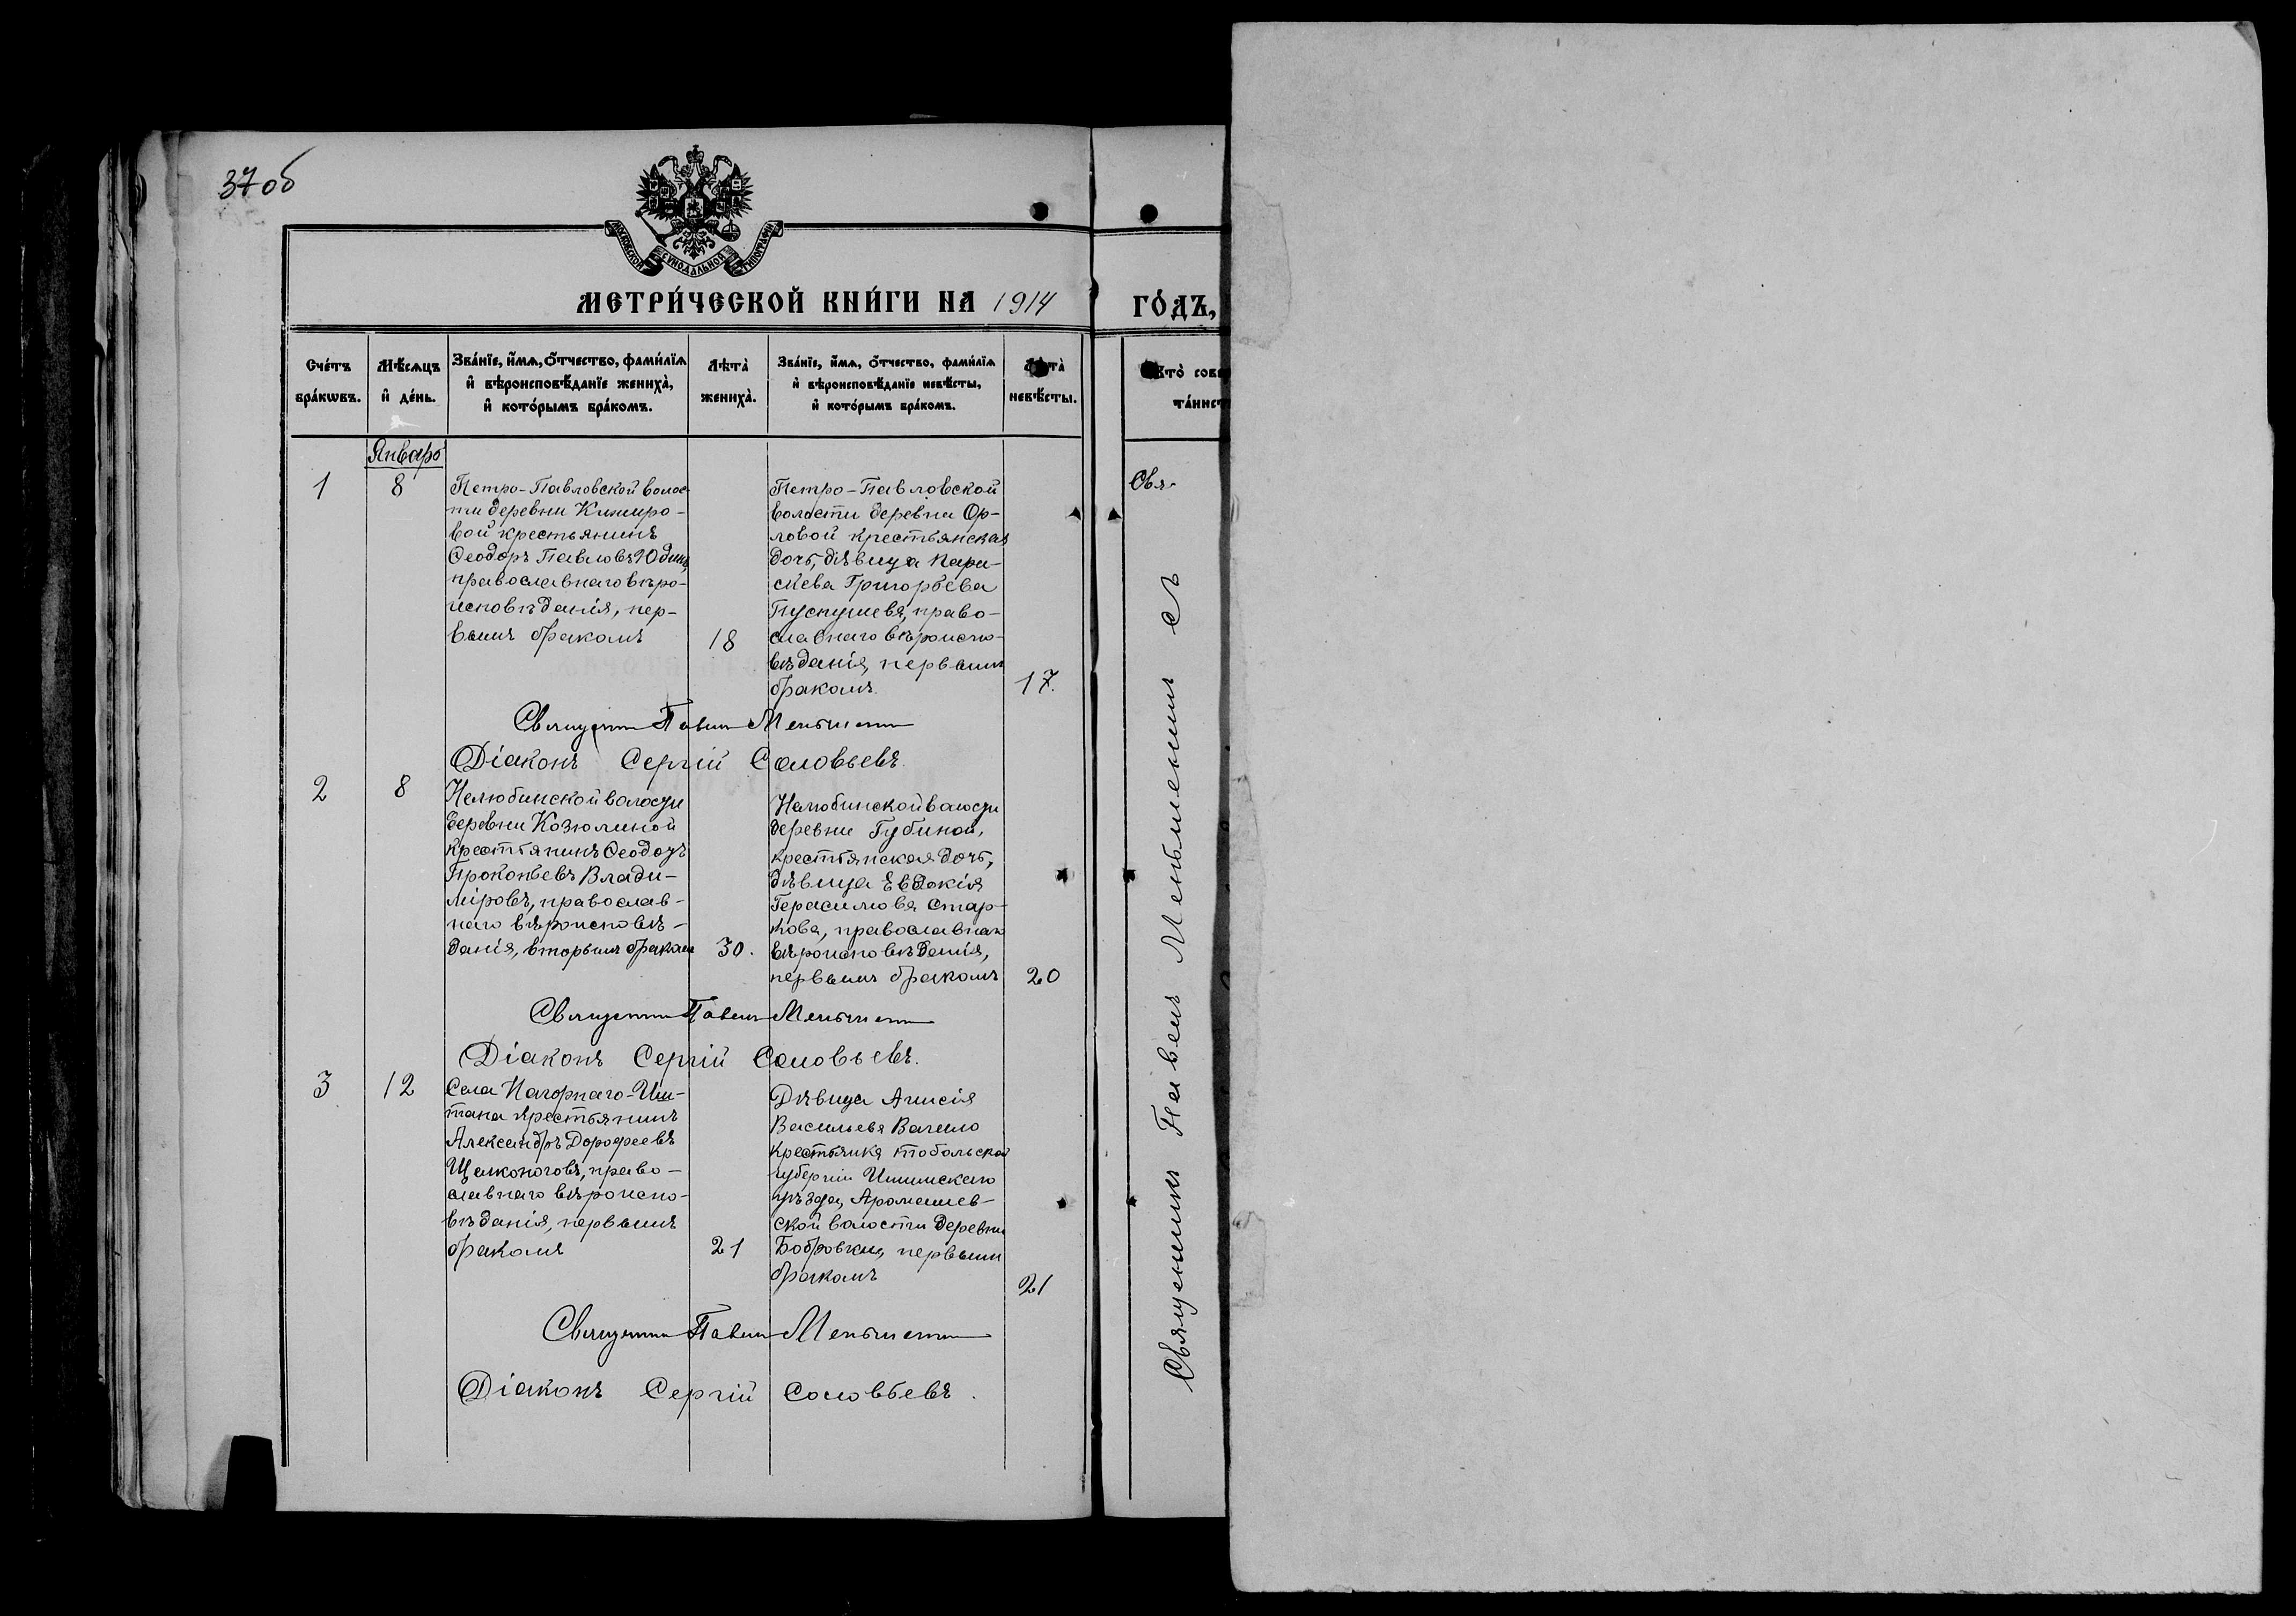 37 об
МОСКОВСКОЙ СѴНОДАЛЬНОЙ ТИПОГРАФІИ
МЕТРИ́ЧЕСКОЙ КНИ́ГИ НА 1914
ГО́ДЪ,
Сче́тъ бра́кѡвъ.
Мѣ́сѧцъ и҆ де́нь.
Зва́нїе, и҆́мѧ, ѻ҆́тчество, фами́лїѧ
и҆ вѣроисповѣ́данїе жениха̀,
и҆ кото́рымъ бра́комъ.
Лѣта̀ жениха̀.
Зва́нїе, и҆́мѧ, ѻ҆́тчество, фами́лїѧ
и҆ вѣроисповѣ́данїе невѣ́сты,
и҆ кото́рымъ бра́комъ.
Лѣта̀ невѣ́сты.
Кто̀ сове
та́инст
Январь
1
8
Петро-Павловской волос-
ти деревни
вой крестьянинъ
Ѳеодоръ Павловъ
православнаго вѣро-
исповѣданія, пер-
вымъ бракомъ
18
Петро-Павловской
волости деревни Ор-
ловой крестьянская
дочь, дѣвица
Григорьева
право-
славнаго вѣроиспо-
вѣданія, первымъ
бракомъ.
17.
Свя-
Священникъ Павелъ Меньшенинъ
Діаконъ Сергій Соловьевъ.
2
8
Нелюбинской волости
деревни Козюлиной
крестьянинъ Ѳеодоръ
Прокопьевъ Влади-
міровъ, православ-
наго вѣроисповѣ-
данія, вторымъ бракомъ
30.
Нелюбинской волости
деревни Губиной,
крестьянская дочь,
дѣвица Евдокія
Герасимова Стар-
кова, православнаго
вѣроисповѣданія,
первымъ бракомъ
20
Священникъ Павелъ Меньшенинъ
Діаконъ Сергій Соловьевъ.
3
12
Села Нагорнаго-Иш-
тана крестьянинъ
Александръ Дорофеевъ
Щелконоговъ, право-
славнаго вѣроиспо-
вѣданія, первымъ
бракомъ
21
Дѣвица Анисія
Васильева
крестьянка Тобольской
губерніи Ишимскаго
уѣзда, Аромашев-
ской волости деревни
Бобровки, первымъ
бракомъ
21
Священникъ Павелъ Меньшенинъ
Діаконъ Сергій Соловьевъ.
Священникъ Павелъ Меньшенинъ съ